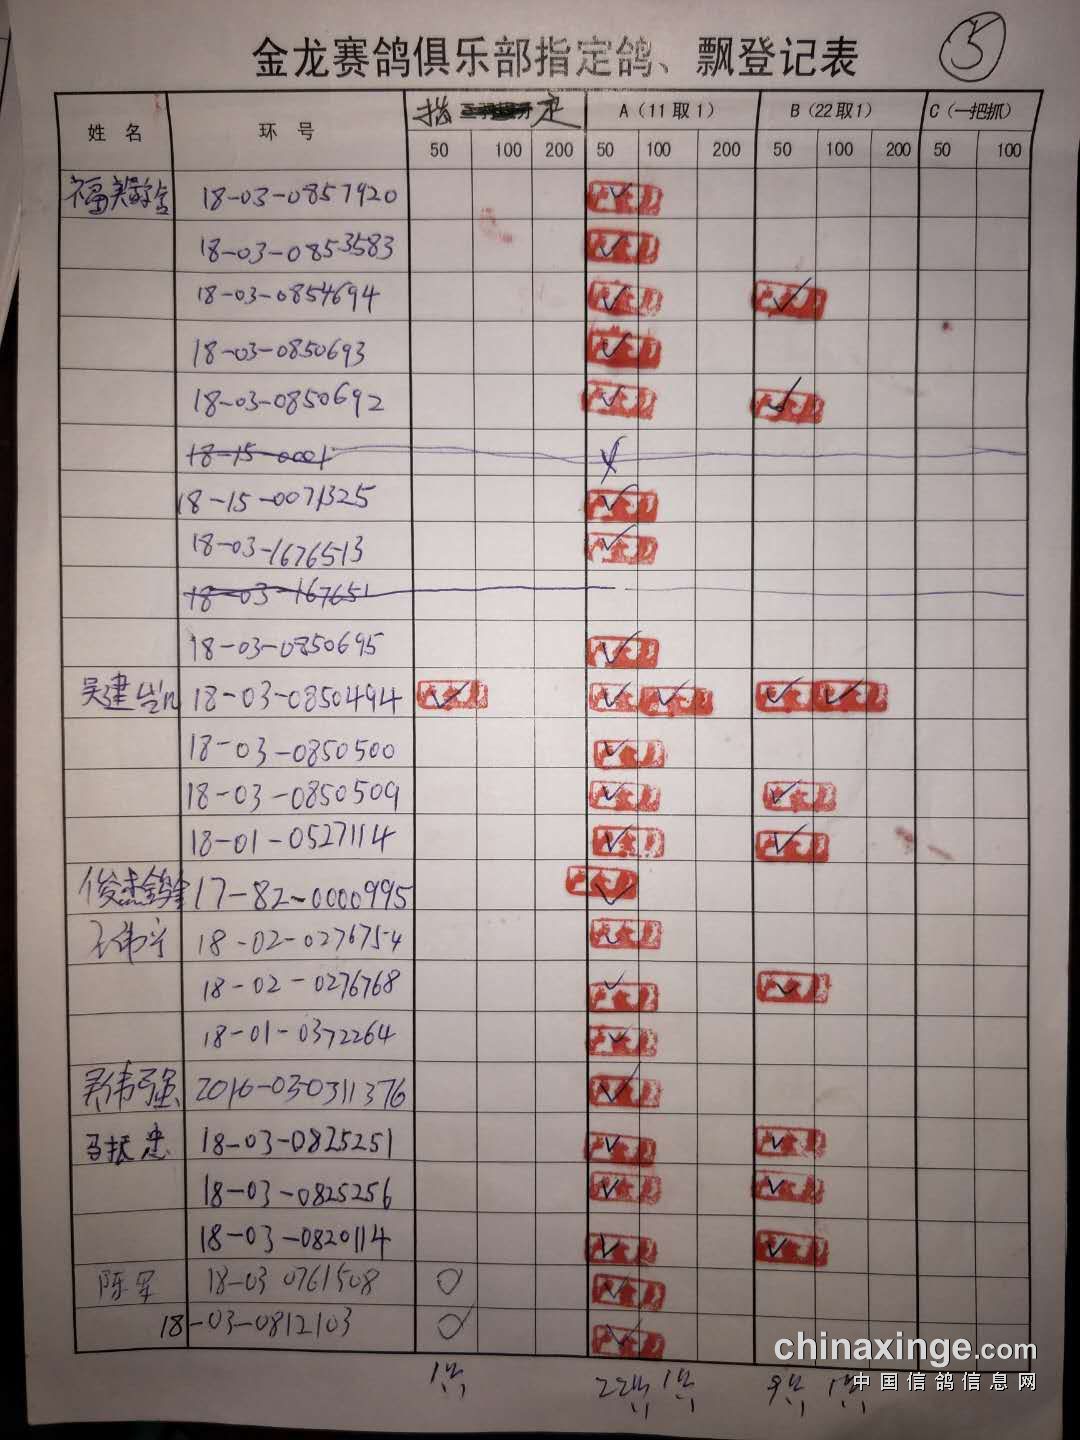 5
金龙赛鸽俱乐部指定鸽、飘登记表
姓 名 环 号 指定 A（11取1） B（22取1） C（一把抓）
50 100 200 50 100 200 50 100 200 50 100
18-03-0857920 ✓
18-03-0853583 ✓
18-03-0854694 ✓ ✓
18-03-0850693 ✓
18-03-0850692 ✓ ✓
18-15-0001
18-15-0071325 ✓
18-03-1676513 ✓
18-03-167651
18-03-0850695 ✓
吴建 18-03-0850494 ✓ ✓ ✓ ✓ ✓
18-03-0850500 ✓
18-03-0850509 ✓ ✓
18-01-0527114 ✓ ✓
俊杰鸽舍 17-82-0000995 ✓
王伟宁 18-02-0276754 ✓
18-02-0276768 ✓ ✓
18-01-0372264 ✓
吴伟强 2016-03-0311376 ✓
马振忠 18-03-0825251 ✓ ✓
18-03-0825256 ✓ ✓
18-03-0820114 ✓ ✓
陈军 18-03 0761508 ○ ✓
18-03-0812103 ○ ✓
chinaxinge.com
中国信鸽信息网
1 22 1 9 1